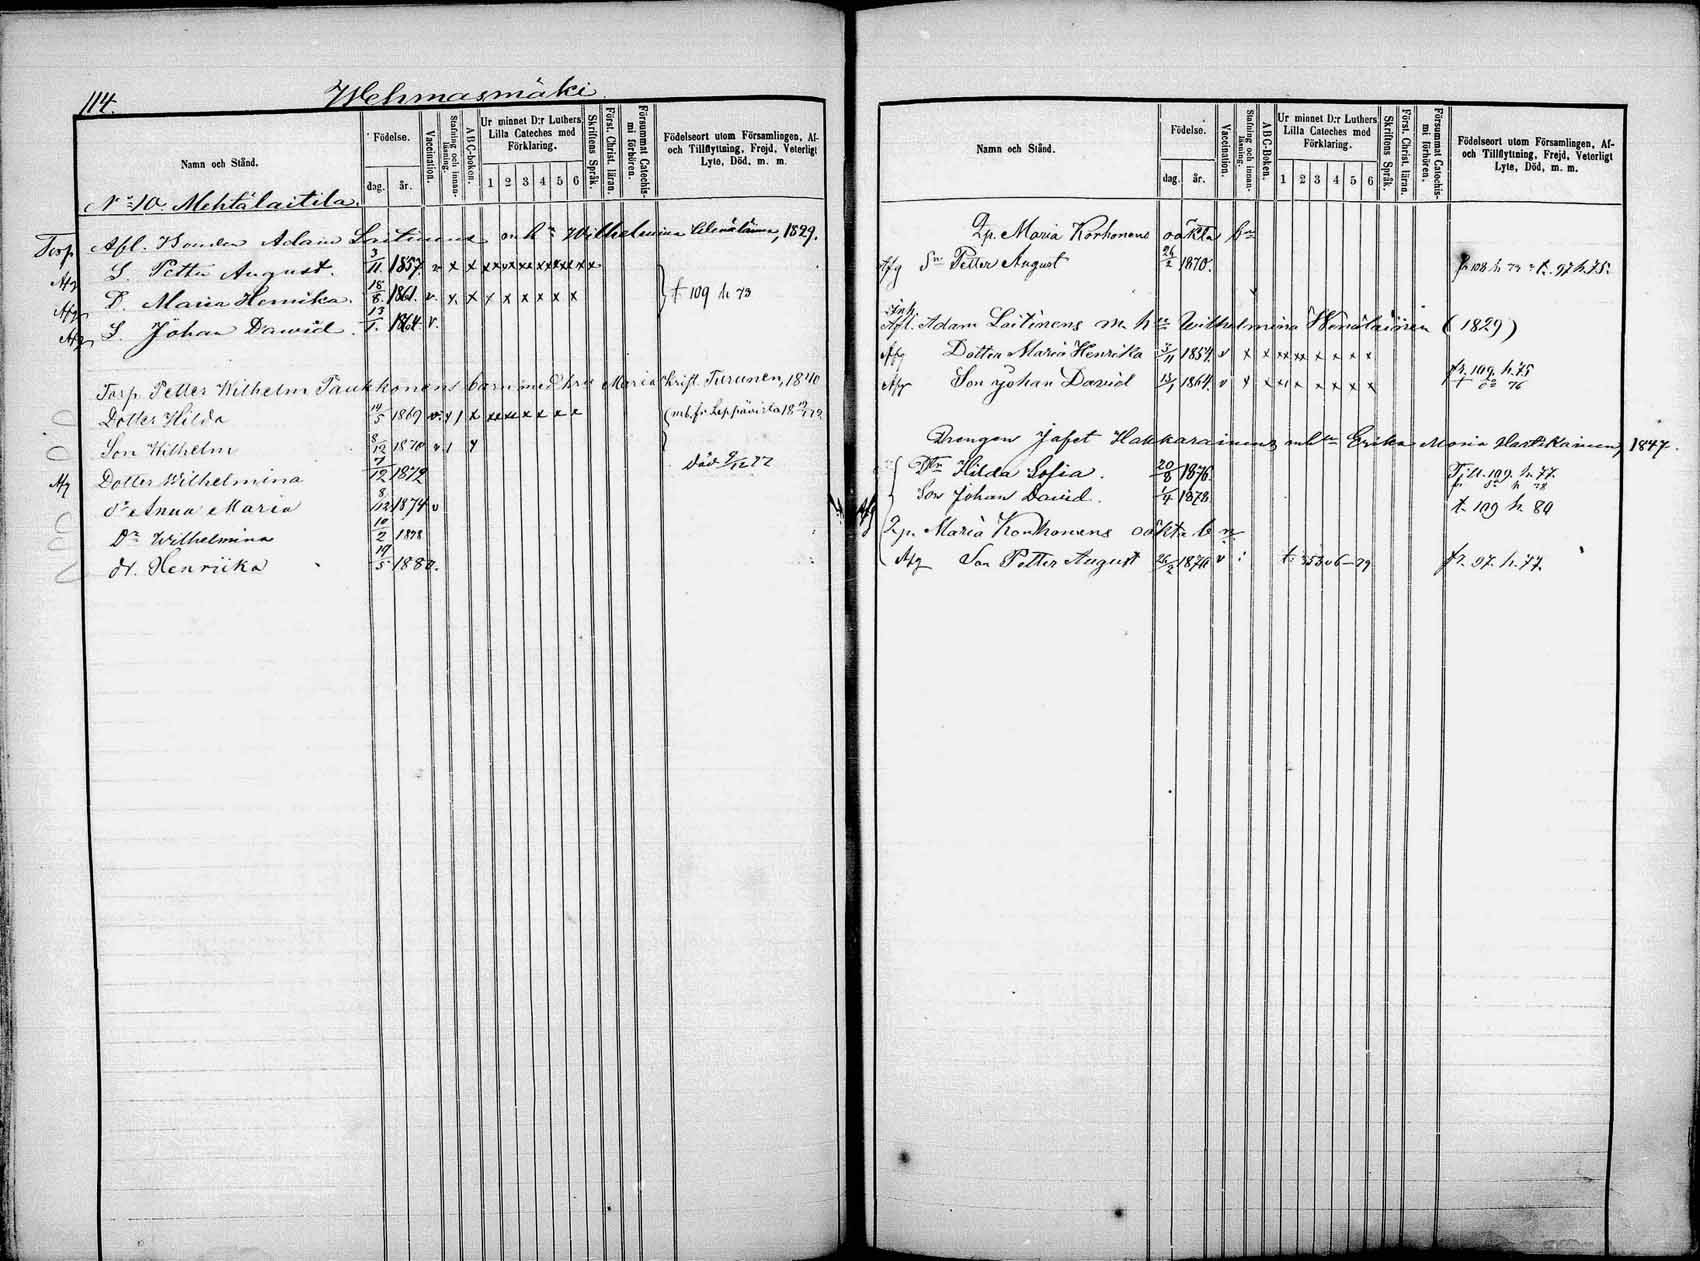 114.
Wehmasmäki
Namn och Stånd.
Födelse.
dag. år.
Vaccination.
Stafning och innanläsning.
ABC-boken.
Ur minnet D:r Luthers Lilla Cateches med Förklaring.
1 2 3 4 5 6
Skriftens Språk.
Först. Christ. läran.
Försummat Catechismi förhören.
Födelseort utom Församlingen, Af- och Tillflyttning, Frejd, Veterligt Lyte, Död, m. m.
No 10. Mehtälaitila.
Torp Afl. Bonden Adam Laitinens Wilhelmina 1829.
Afg S. Petter August. 3/11 1857. v x x x x x x x x x x x
Afg D. Maria Henrika. 18/8. 1861. v. x x x x x x x x } t 109 h 73
Afg S. Johan Dawid. 13/1. 1864. v.
Torp. Petter Wilhelm Paukkonens barn med hru Maria Krist. Turunen, 1840
Dotter Hilda 14/5 1869 v. x x x x x x x
Son Wilhelm 8/12 1870
Afg Dotter Wilhelmina 7/12 1872 död 9/12 77
do Anna Maria 8/12 1874 v
Dr Wilhelmina 10/2 1878
dr. Henriika 14/5 1880.
Namn och Stånd.
Födelse.
dag. år.
Vaccination.
Stafning och innanläsning.
ABC-Boken.
Ur minnet D:r Luthers Lilla Catechės med Förklaring.
1 2 3 4 5 6
Skriftens Språk.
Först. Christ. läran.
Försummat Catechismi förhören.
Födelseort utom Församlingen, Af- och Tillflyttning, Frejd, Veterligt Lyte, Död, m. m.
Qp. Maria Korhonens oäkta bn
Afg Sn Petter August 26/2 1870. fr 108 h 73 t. 97 h. 75.
Inh. Afl. Adam Laitinens m. h Wilhelmina Wenäläinen (1829)
Afg Dotter Maria Henrika v x x x x x x x x
Afg Son Johan David 13/1 1864. v x x x x x x x x fr. 109. h. 75 t do 76
Drengen Jafet Hakkarainens Erika Maria Hartikainen, 1847.
Dtr Hilda Sofia. 20/8 1876 109. h. 77.
Son Johan David. 1/4 1878 t. 109 h 80
Afg Qp. Maria Korhonens oäkta bn
Afg Son Petter August 26/2 1870 v fr. 97. h. 77.